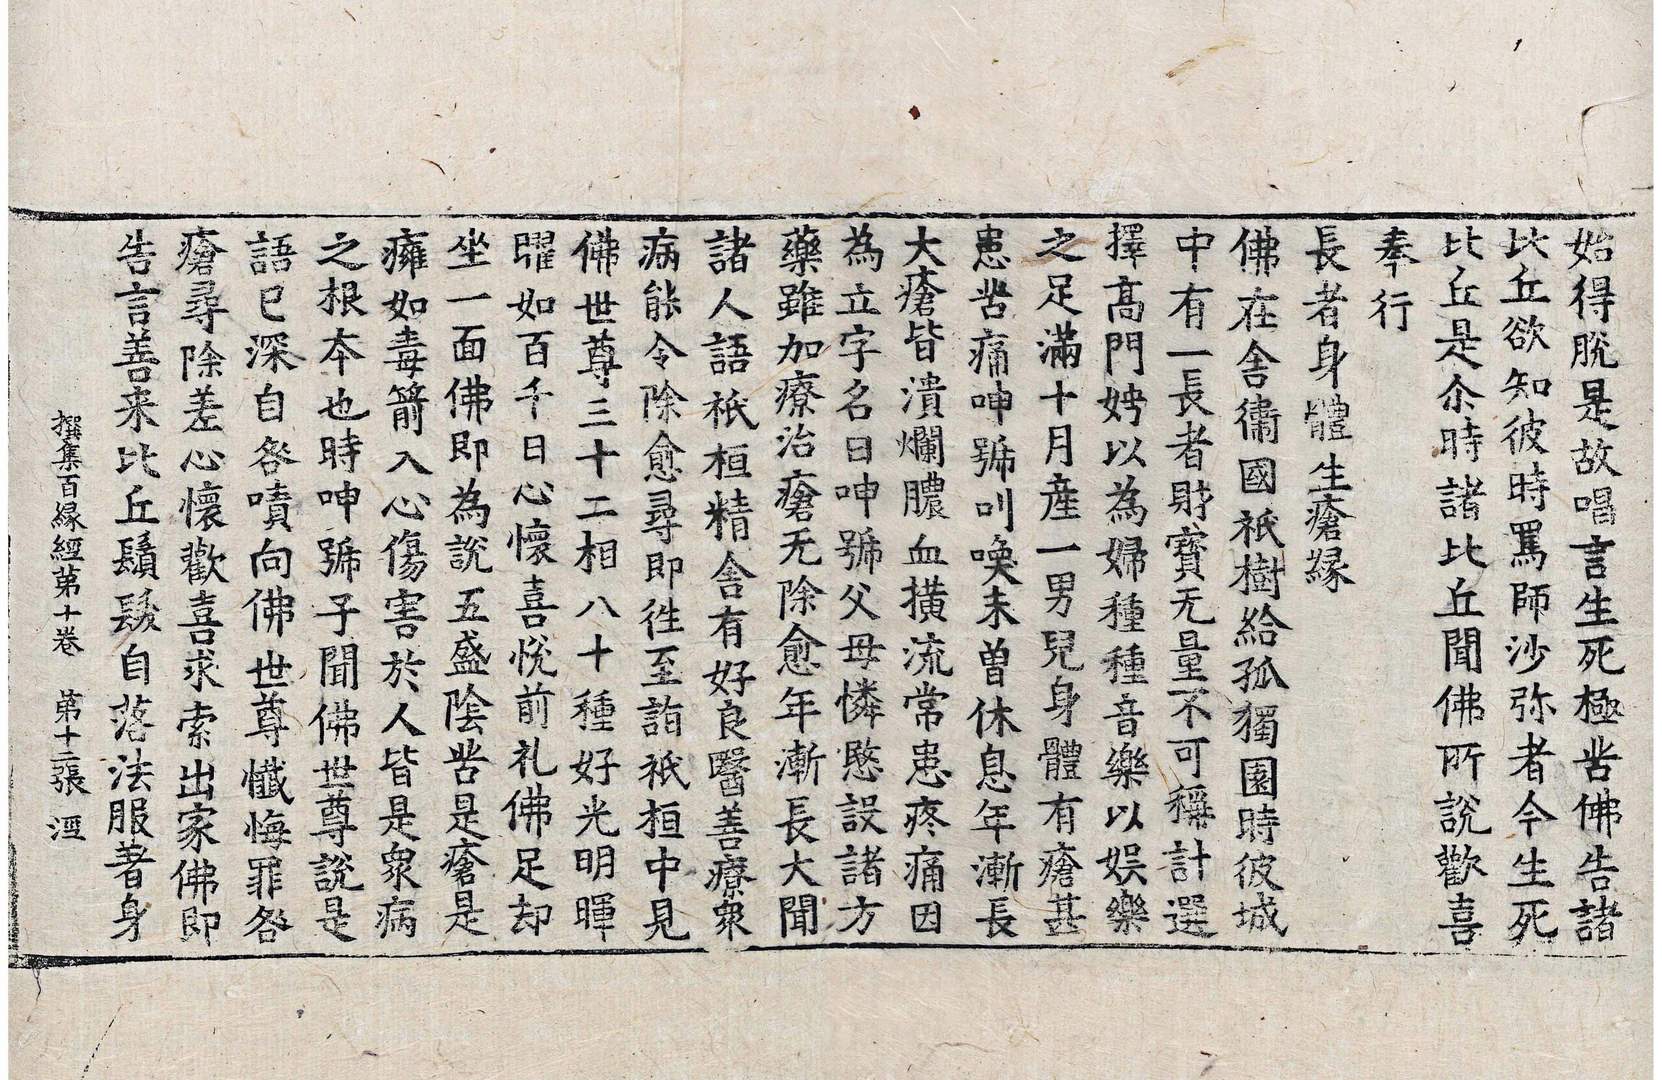 始得脫是故唱言生死極苦佛告諸
比丘欲知彼時罵師沙弥者今生死
比丘是尒時諸比丘聞佛所說歡喜
奉行
長者身體生瘡緣
佛在舍衛國祇樹給孤獨園時彼城
中有一長者財寶无量不可稱計選
擇高門娉以為婦種種音樂以娯樂
之足滿十月產一男兒身體有瘡甚
患苦痛呻號叫喚未曽休息年漸長
大瘡皆潰爛膿血橫流常患疼痛因
為立字名曰呻號父母憐愍設諸方
藥雖加療治瘡无除愈年漸長大聞
諸人語祇桓精舍有好良醫善療衆
病能令除愈尋即往至詣祇桓中見
佛世尊三十二相八十種好光明暉
曜如百千日心懷喜悅前礼佛足却
坐一面佛即為說五盛陰苦是瘡是
癰如毒箭入心傷害於人皆是衆病
之根本也時呻號子聞佛世尊說是
語已深自咎嘖向佛世尊懺悔罪咎
瘡尋除差心懷歡喜求索出家佛即
告言善来比丘鬚髮自落法服著身
撰集百緣經第十卷 第十二張 涇